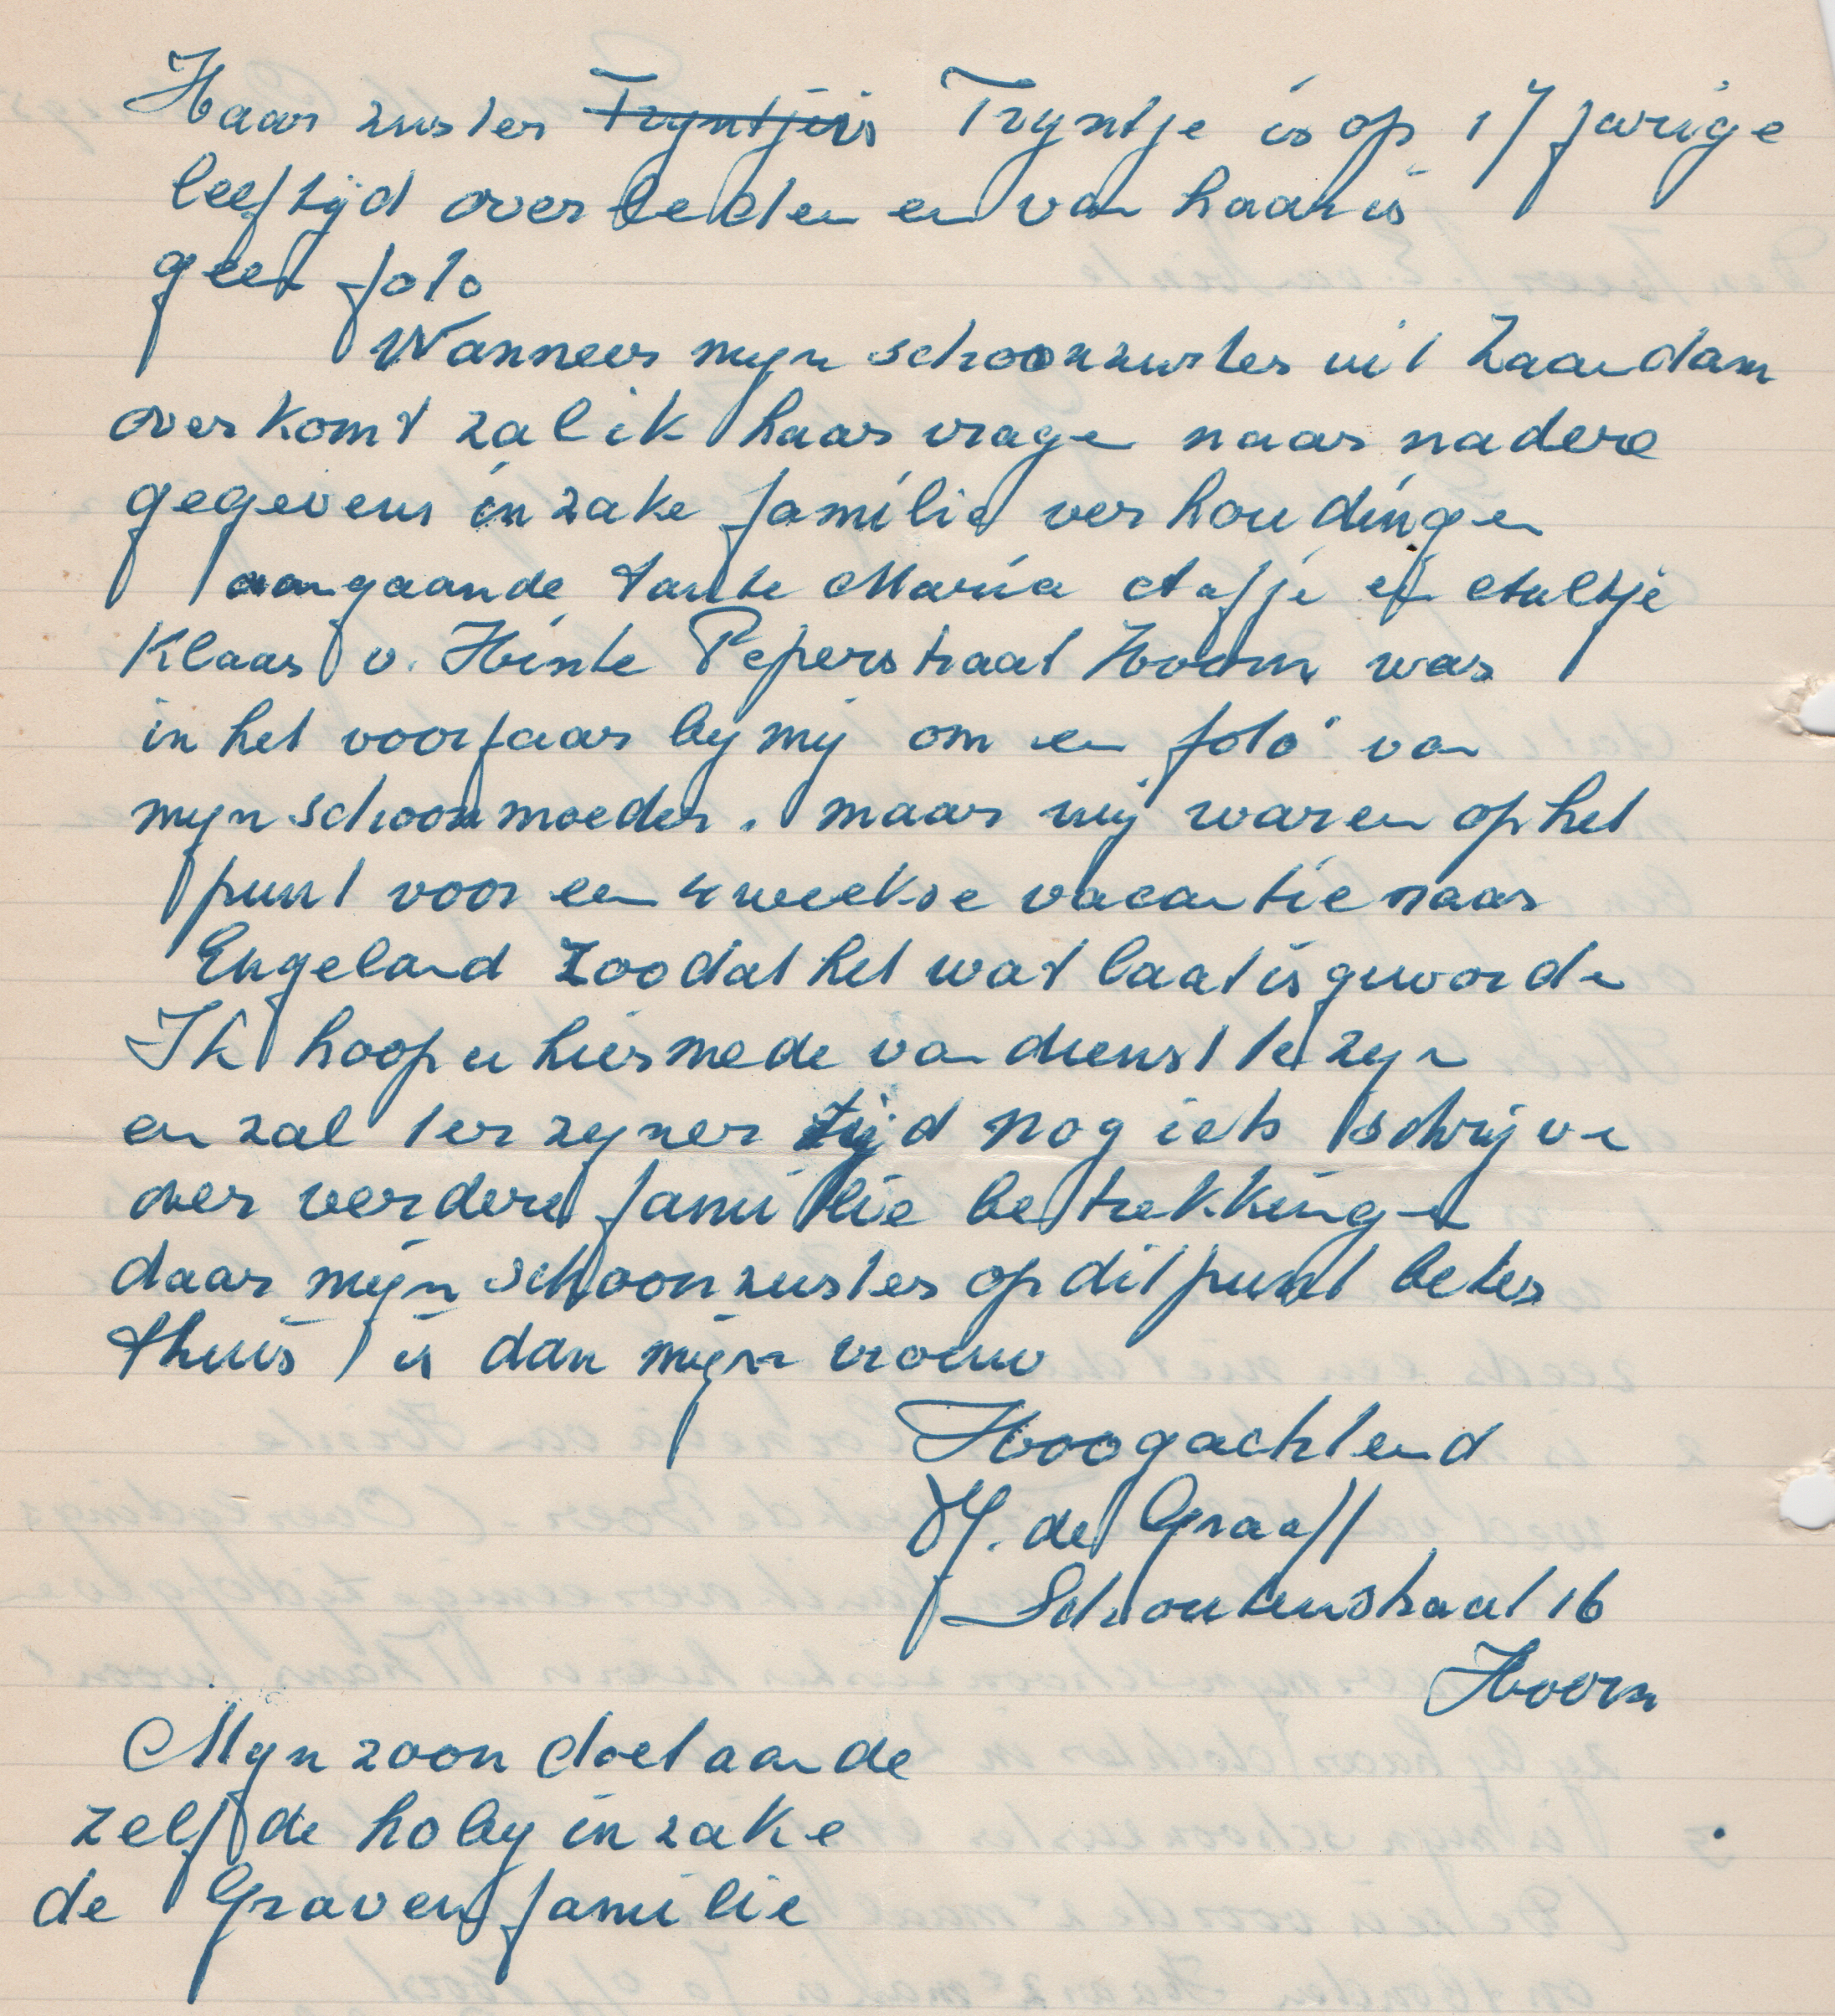 Haar zuster Tryntjeis Tryntje is op 17 jarige
leeftijd overleden en van haar is
geen foto
Wanneer myn schoonzuster uit Zaandam
overkomt zal ik haar vragen naar nadere
gegevens inzake familie verhoudingen
aangaande tante Maria Aafje en Aaltje
Klaas v. Hinte Peperstraat Hoorn was
in het voorjaar by mij om een foto van
myn schoonmoeder. maar wij waren op het
punt voor een 4 weekse vacantie naar
Engeland Zoodat het wat laat is geworden
Ik hoop u hiermede van dienst te zyn
en zal ter zyner tijd nog iets schrijven
over verdere familie betrekkingen
daar mijn schoonzuster op dit punt beter
thuis is dan mijn vrouw
Hoogachtend
H. de Graaff
Schoutenstraat 16
Hoorn
Mijn zoon doet aan de
zelfde hoby inzake
de Graven familie